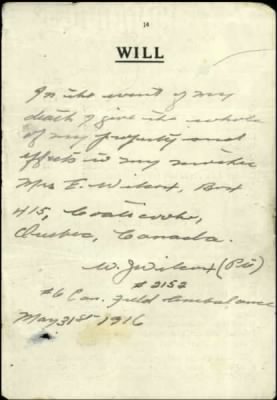 14
WILL
In the event of my
death I give the whole
of my property and
effects to my mother
Mrs E. Wilcox, Box
415, Coaticooke,
Quebec, Canada.
W. J Wilcox (Pte)
# 2152
#6 Can. Field Ambulance
May 31st 1916